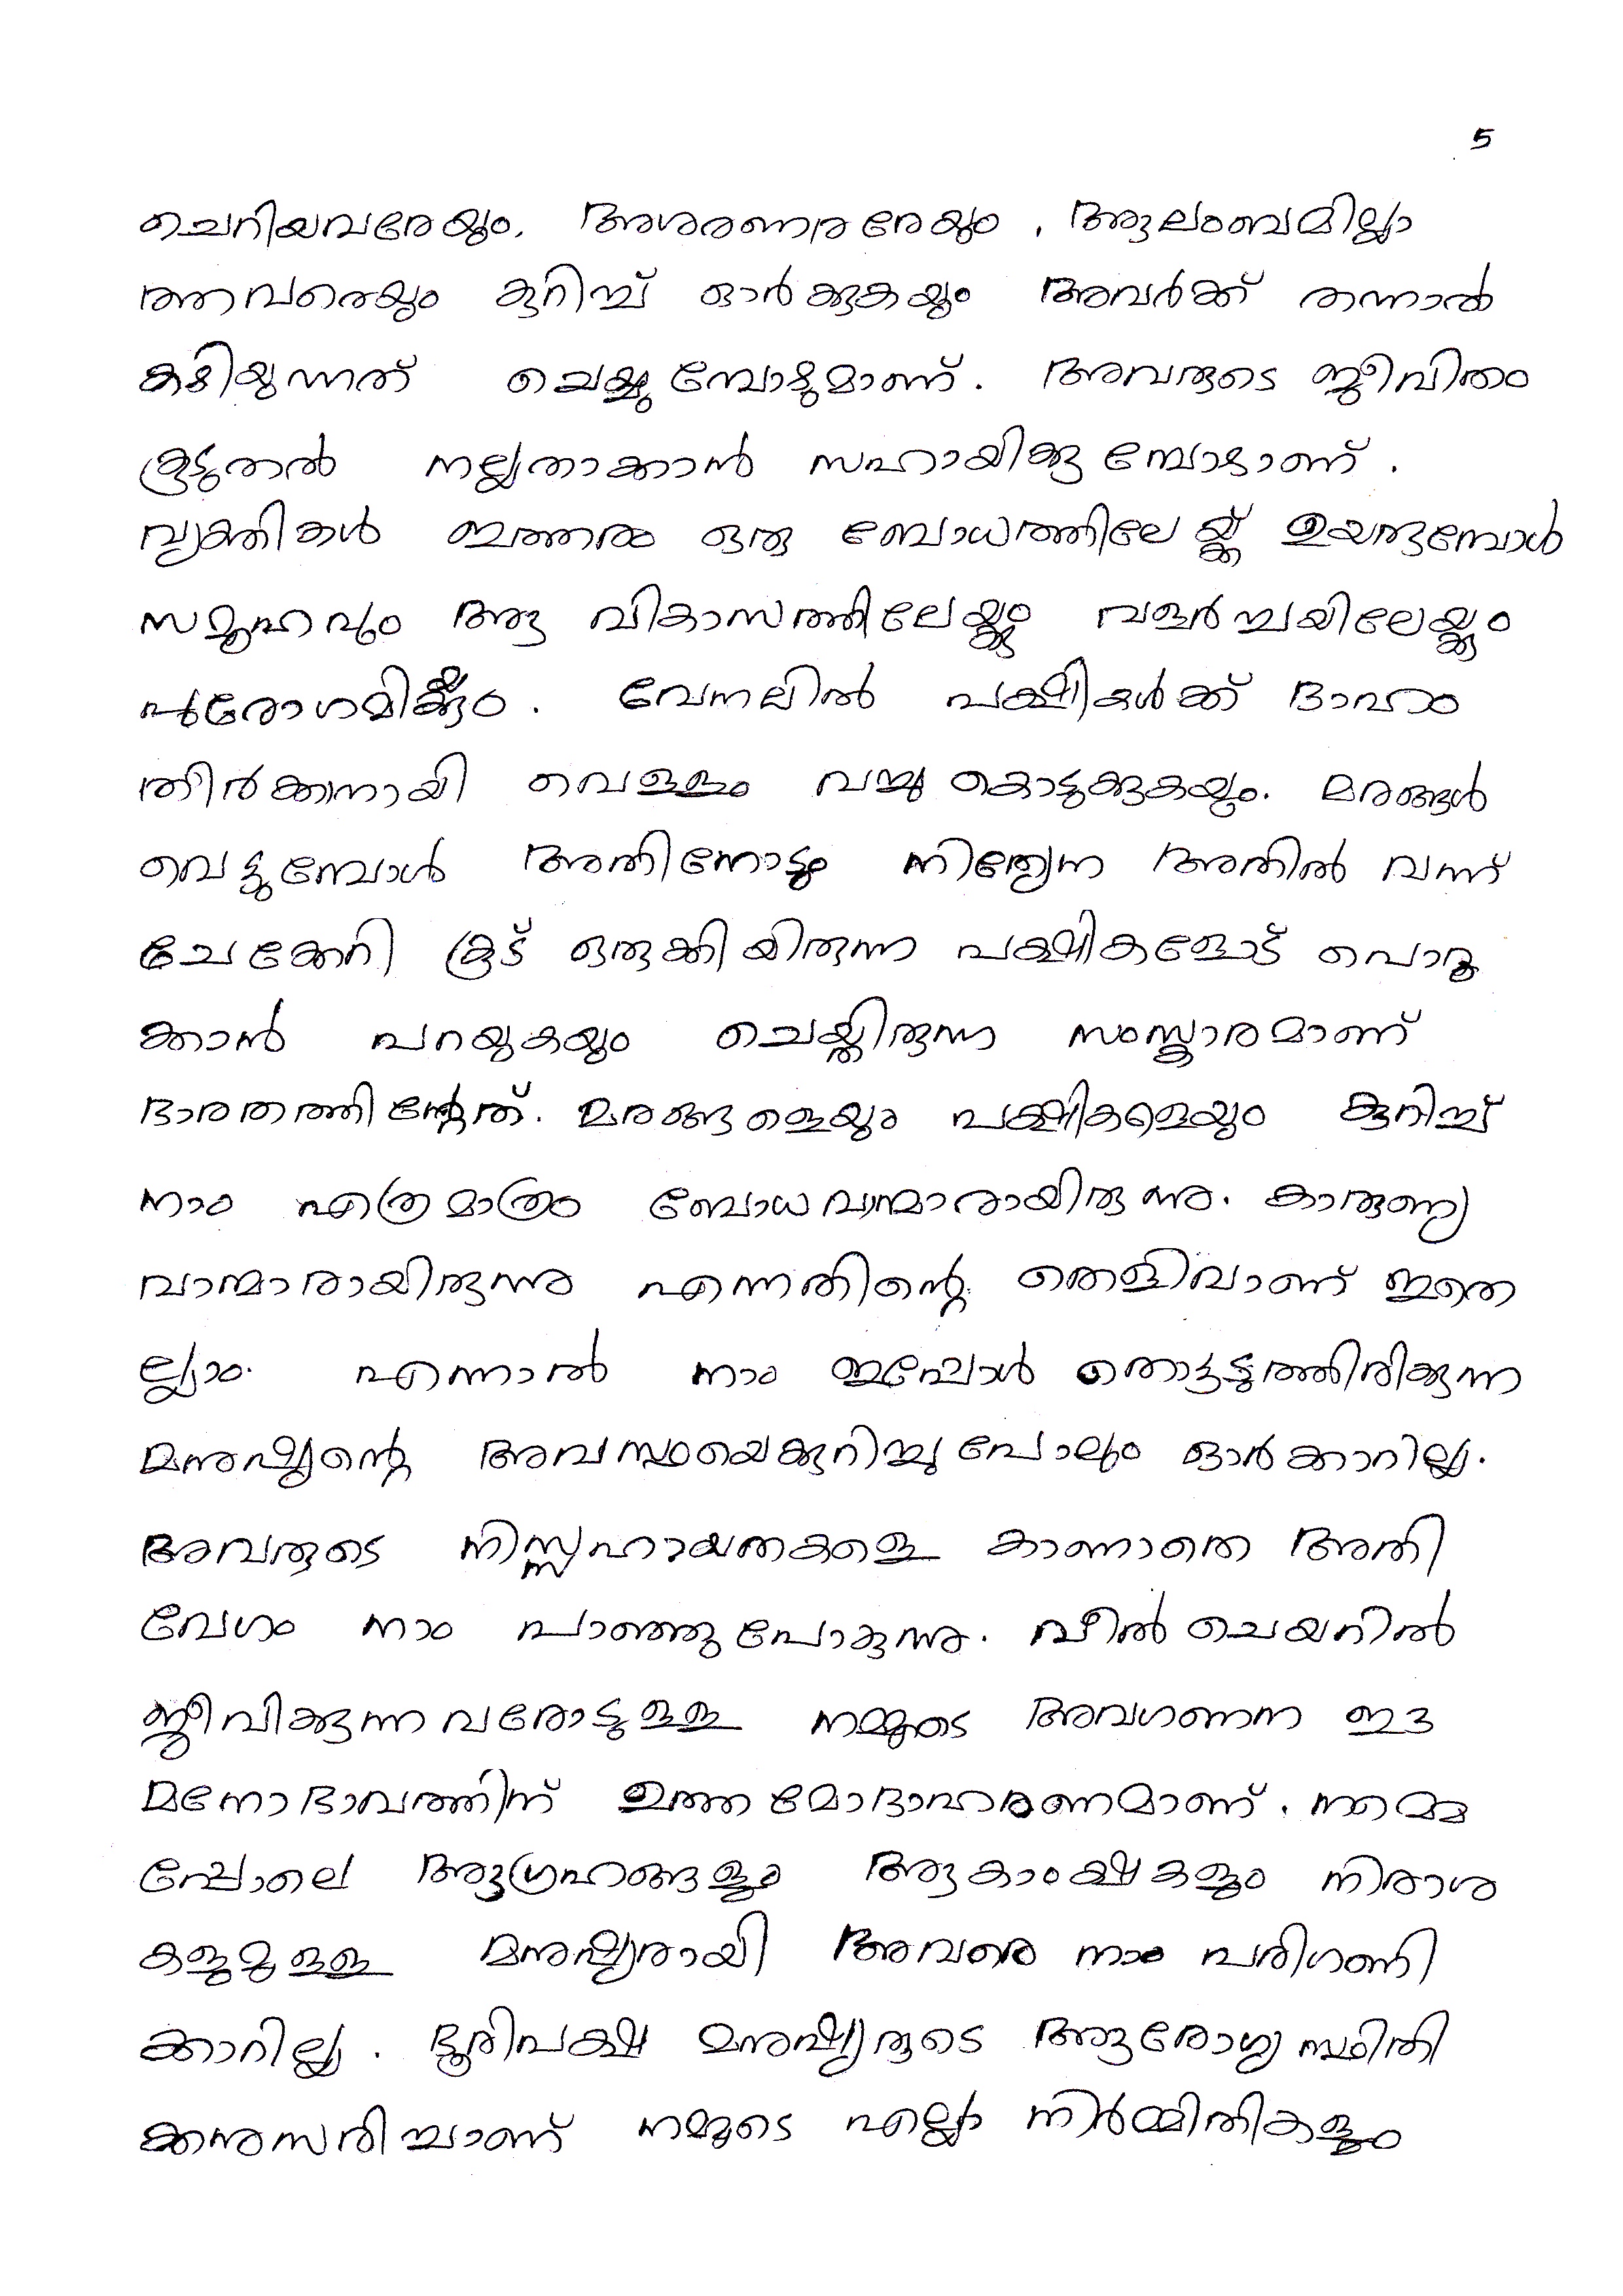 5
ചെറിയവരേയും, അശരണരേയും, ആലംബമില്ലാ
ത്തവരെയും കുറിച്ച് ഓർക്കുകയും അവർക്ക് തന്നാൽ
കഴിയുന്നത് ചെയ്യുമ്പോഴുമാണ്. അവരുടെ ജീവിതം
കൂടുതൽ നല്ലതാക്കാൻ സഹായിക്കുമ്പോഴാണ്.
വ്യക്തികൾ ഇത്തരം ഒരു ബോധത്തിലേയ്ക്ക് ഉയരുമ്പോൾ
സമൂഹവും ആ വികാസത്തിലേയ്ക്കും വളർച്ചയിലേയ്ക്കും
പുരോഗമിക്കും. വേനലിൽ പക്ഷികൾക്ക് ദാഹം
തീർക്കാനായി വെള്ളം വച്ചു കൊടുക്കുകയും. മരങ്ങൾ
വെട്ടുമ്പോൾ അതിനോടും നിത്യേന അതിൽ വന്ന്
ചേക്കേറി കൂട് ഒരുക്കിയിരുന്ന പക്ഷികളോട് പൊറു
ക്കാൻ പറയുകയും ചെയ്തിരുന്ന സംസ്കാരമാണ്
ഭാരതത്തിന്റേത്. മരങ്ങളെയും പക്ഷികളെയും കുറിച്ച്
നാം എത്രമാത്രം ബോധവാന്മാരായിരുന്നു. കാരുണ്യ
വാന്മാരായിരുന്നു എന്നതിന്റെ തെളിവാണ് ഇതെ
ല്ലാം. എന്നാൽ നാം ഇപ്പോൾ തൊട്ടടുത്തിരിക്കുന്ന
മനുഷ്യന്റെ അവസ്ഥയെക്കുറിച്ചുപോലും ഓർക്കാറില്ല.
അവരുടെ നിസ്സഹായതകളെ കാണാതെ അതി
വേഗം നാം പാഞ്ഞുപോകുന്നു. വീൽ ചെയറിൽ
ജീവിക്കുന്നവരോടുള്ള നമ്മുടെ അവഗണന ഈ
മനോഭാവത്തിന് ഉത്തമോദാഹരണമാണ്. നമ്മെ
പ്പോലെ ആഗ്രഹങ്ങളും ആകാംക്ഷകളും നിരാശ
കളുമുള്ള മനുഷ്യരായി അവരെ നാം പരിഗണി
ക്കാറില്ല. ഭൂരിപക്ഷ മനുഷ്യരുടെ ആരോഗ്യസ്ഥിതി
ക്കനുസരിച്ചാണ് നമ്മുടെ എല്ലാ നിർമ്മിതികളും